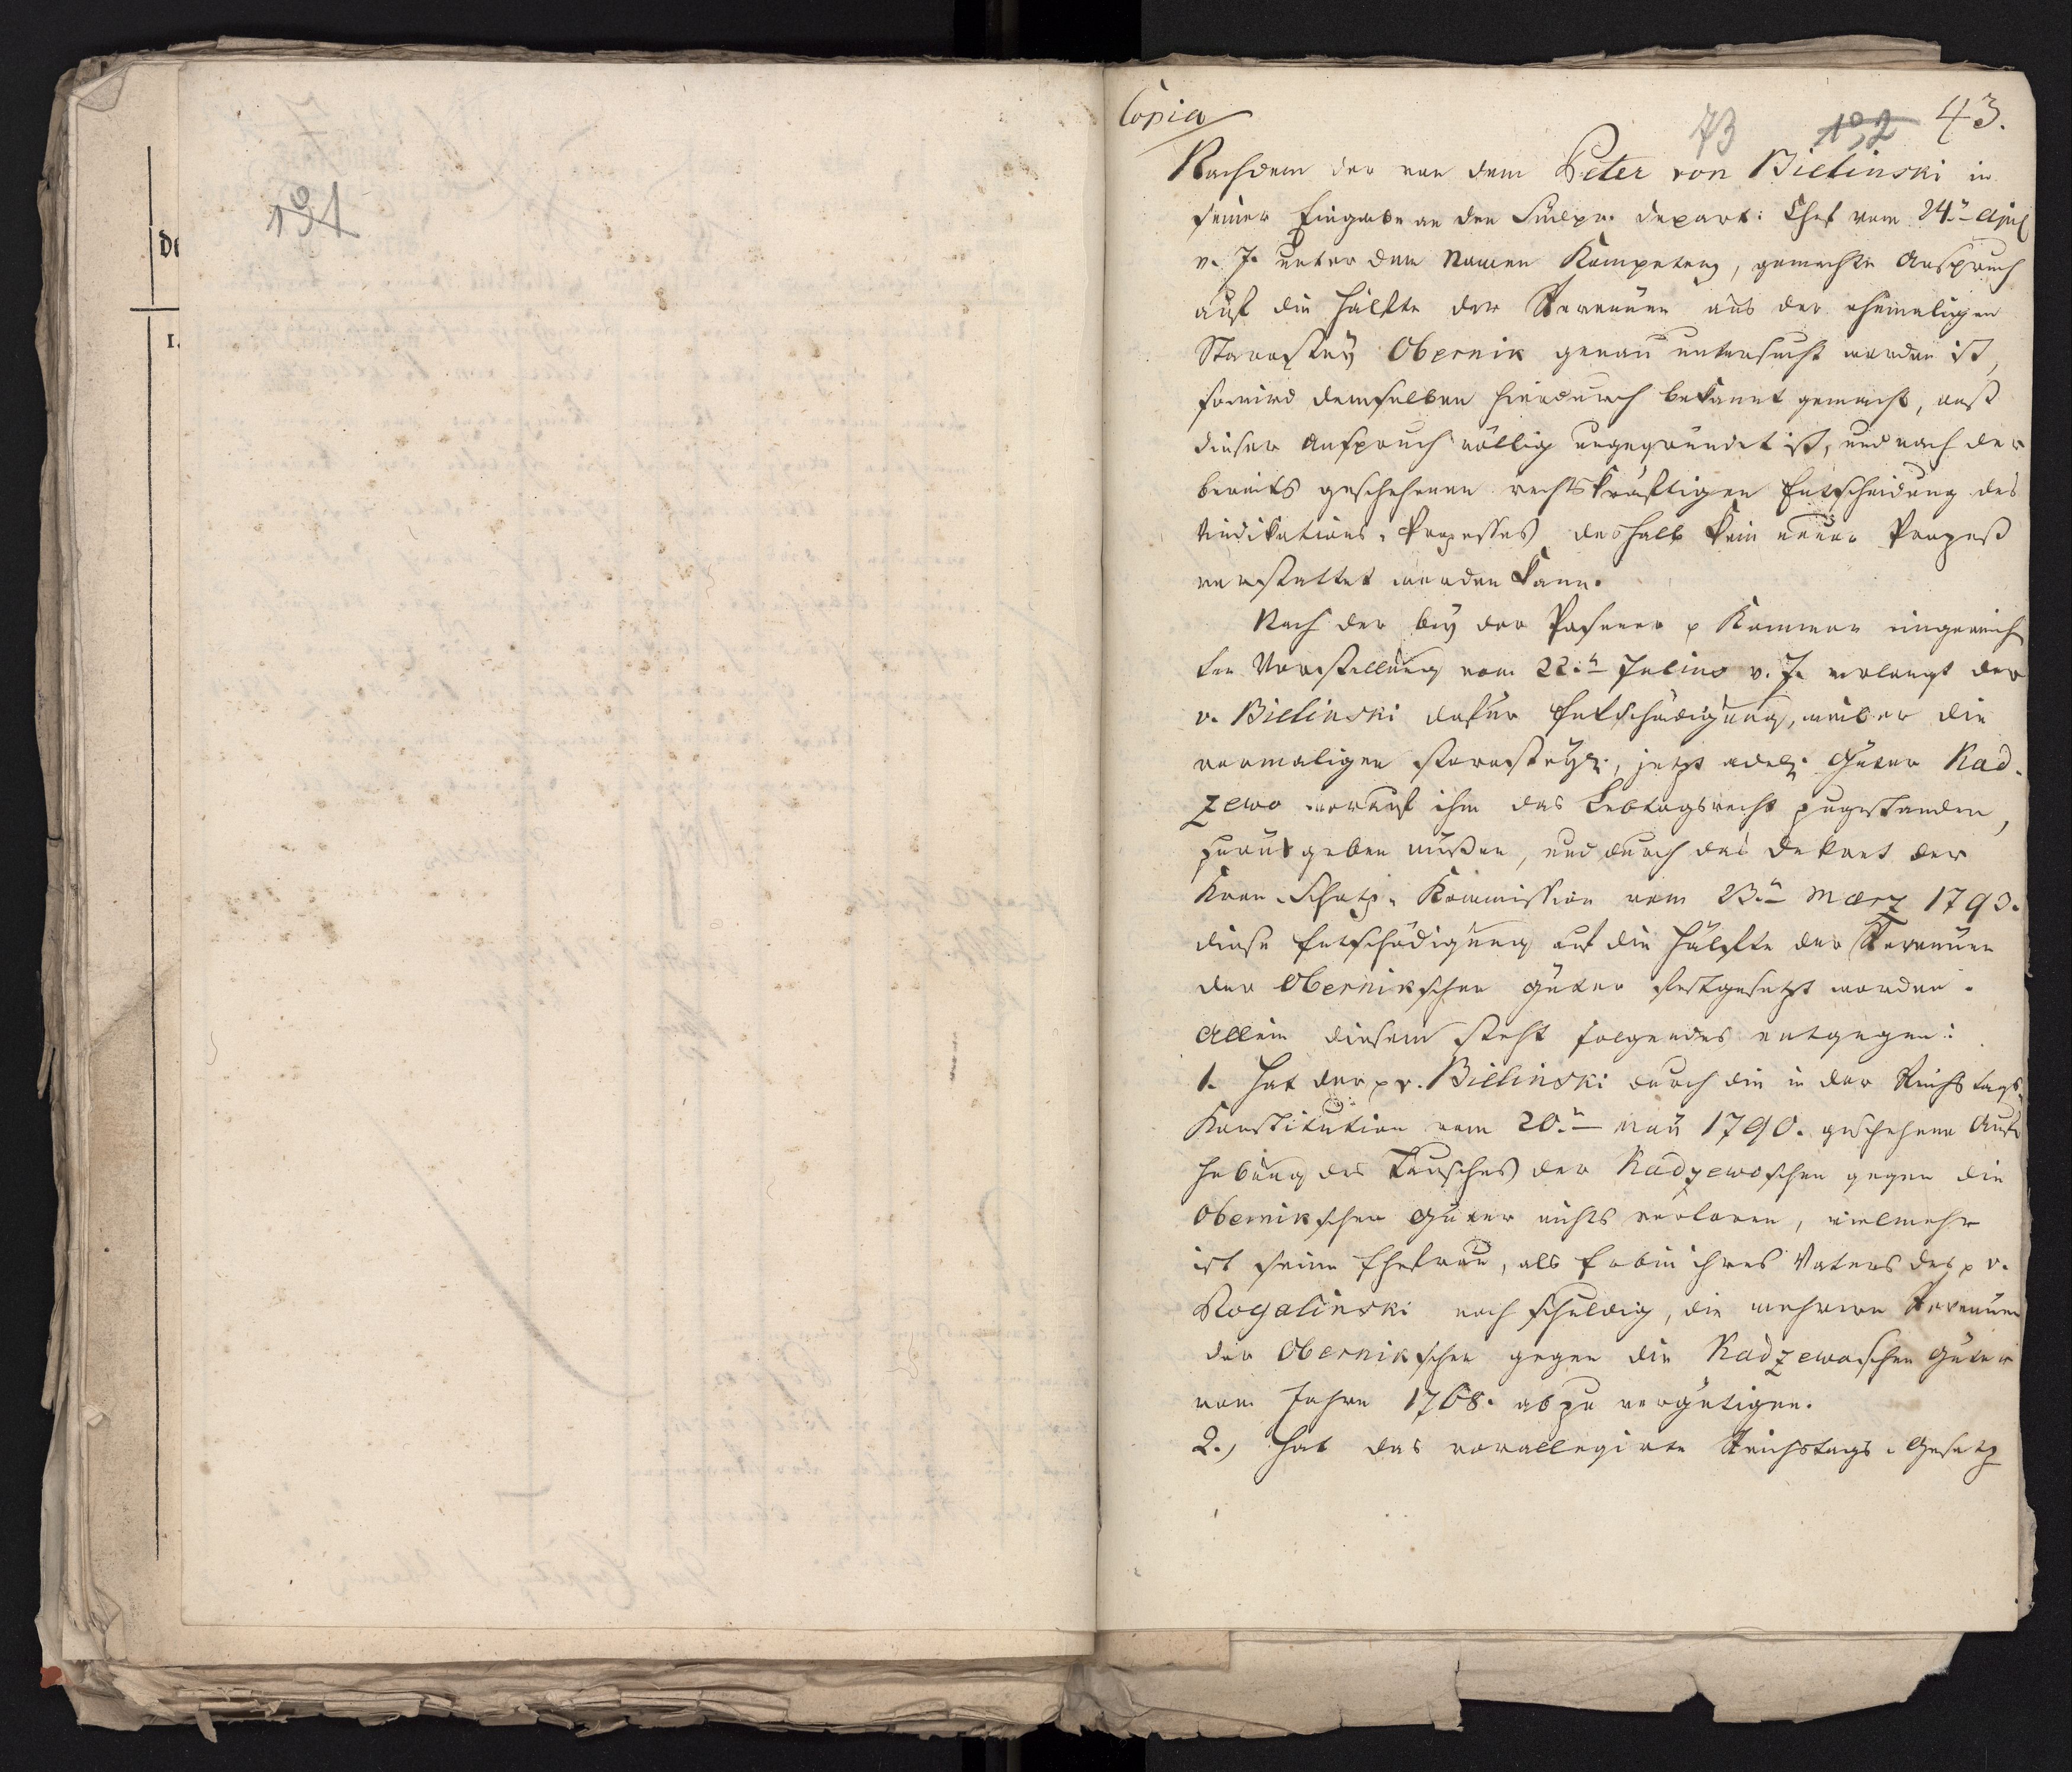 de
1.
131
Copia
73 132 43.
Nachdem der von dem Peter von Bielinski in
seiner Eingabe an den Südpr. Depart: Chef vom 24.n April
v. J. unter dem Namen Kompetenz, gemachte Anspruch
auf die Hälfte der Revenüen aus der ehemaligen
Starostey Obernik genau untersucht worden ist,
so wird demselben hierdurch bekannt gemacht, daß
dieser Anspruch völlig ungegründet ist, und nach der
bereits geschehenen rechtskräftigen Entscheidung des
Vindikations-Prozesses deshalb kein neuer Prozeß
verstattet werden kann.
Nach der bey der Posener p Kammer eingereich
ten Vorstellung vom 22.n Julius v. J. verlangt der
v. Bielinski dafür Entschädigung, weil er die
vormaligen Starosteyl:, jetzt adel: Güter Rad-
zewo worauf ihm das Lebtagsrecht zugestanden,
herausgeben müßen, und durch das Dekret der
Kron-Schatz-Kommission vom 23.n Maerz 1793.
diese Entschädigung auf die Hälfte der Revenüen
der Obernikschen Güter festgesetzt worden.
Allein diesem steht folgendes entgegen:
1. Hat der p v. Bielinski durch die in der Reichstags-
Konstitution vom 20.n May 1790. geschehene Auf-
hebung des Tausches der Radzewoschen gegen die
Obernikschen Güter nichts verloren, vielmehr
ist seine Ehefrau, als Erbin ihres Vaters des p v.
Rogalinski noch schuldig, die mehrern Revenüen
der Obernikschen gegen die Radzewoschen Güter
vom Jahre 1768. ab zu vergütigen.
2.) Hat das vorallegirte Reichstags-Gesetz